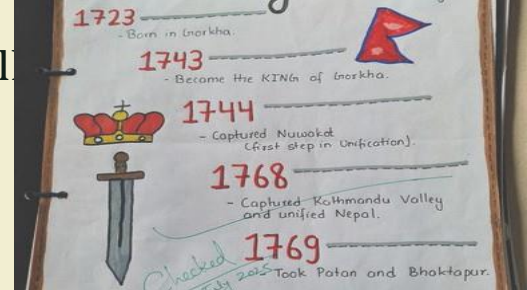 1723
- Born in Gorkha.
1743
- Became the KING of Gorkha.
1744
- Captured Nuwakot
(first step in Unification).
1768
- Captured Kathmandu Valley
and unified Nepal.
1769
Took Patan and Bhaktapur.
Checked
July 2025